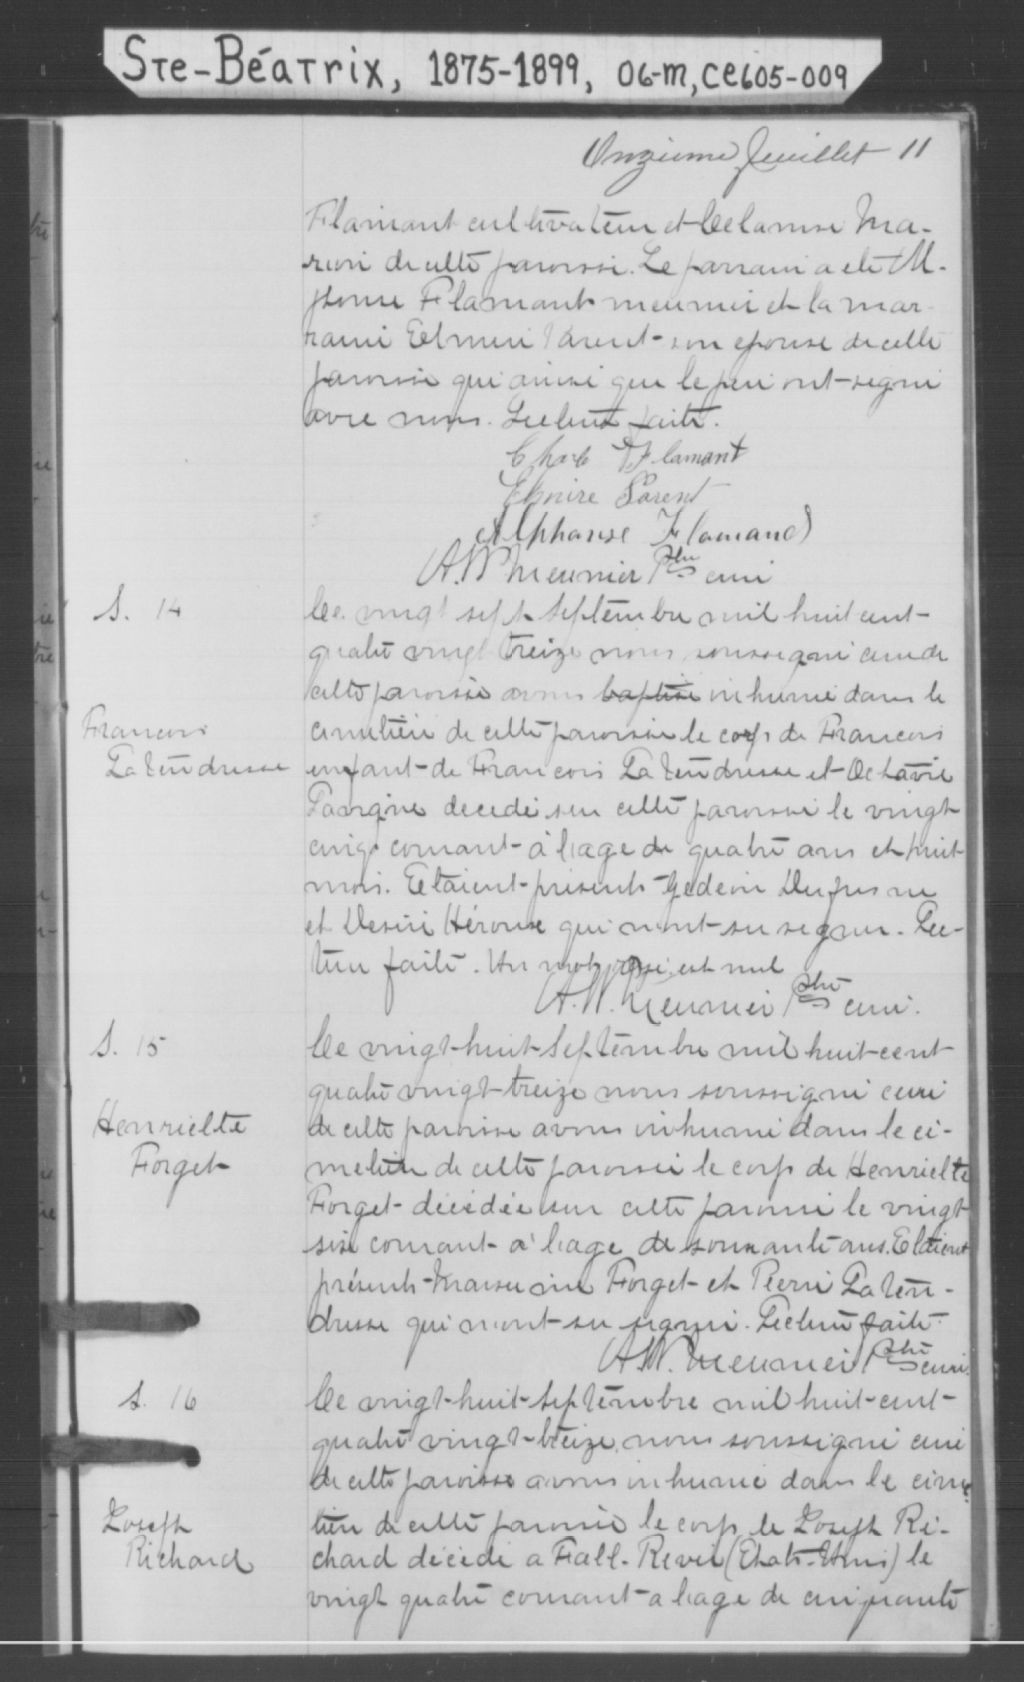 Ste-Béatrix, 1875-1899, 06-M, CE605-009
Onzième feuillet 11
Flamant cultivateur et Ma-
rion de cette paroisse. Le parrain a été Al-
phonse Flamant meunier et la mar-
raine Elmire Parent son épouse de cette
paroisse qui ainsi que le père ont signé
avec nous. Lecture faite.
Charle Flamant
Elmire Parent
Alphonse Flamand
A. N. Meunier Ptre curé
S. 14
Ce vingt sept Septembre mil huit cent
quatre vingt treize nous soussigné curé de
cette paroisse avons baptisé inhumé dans le
Francois
Latendresse
cimetière de cette paroisse le corps de Francois
enfant de Francois Latendresse et Octavie
décédé sur cette paroisse le vingt
cinq courant à l'age de quatre ans et huit
mois. Etaient présents Gédéon Dufresne
et Désiré Héroux qui n'ont su signer. Lec-
ture faite. Un mot rayé est nul
A. N. Meunier Ptre curé.
S. 15
Ce vingt-huit Septembre mil huit-cent
quatre vingt-treize nous soussigné curé
Henriette
Forget
de cette paroisse avons inhumé dans le ci-
metière de cette paroisse le corps de Henriette
Forget décédée sur cette paroisse le vingt
six courant à l'age de soixante ans. Etaient
présents Forget et Pierre Laten-
dresse qui n'ont su signer. Lecture faite.
A. N. Meunier Ptre curé.
S. 16
Ce vingt-huit Septembre mil huit-cent-
quatre vingt-treize, nous soussigné curé
de cette paroisse avons inhumé dans le cime
Joseph
Richard
tière de cette paroisse le corps de Joseph Ri-
chard décédé a Fall-River (Etats-Unis) le
vingt quatre courant a l'age de cinquante